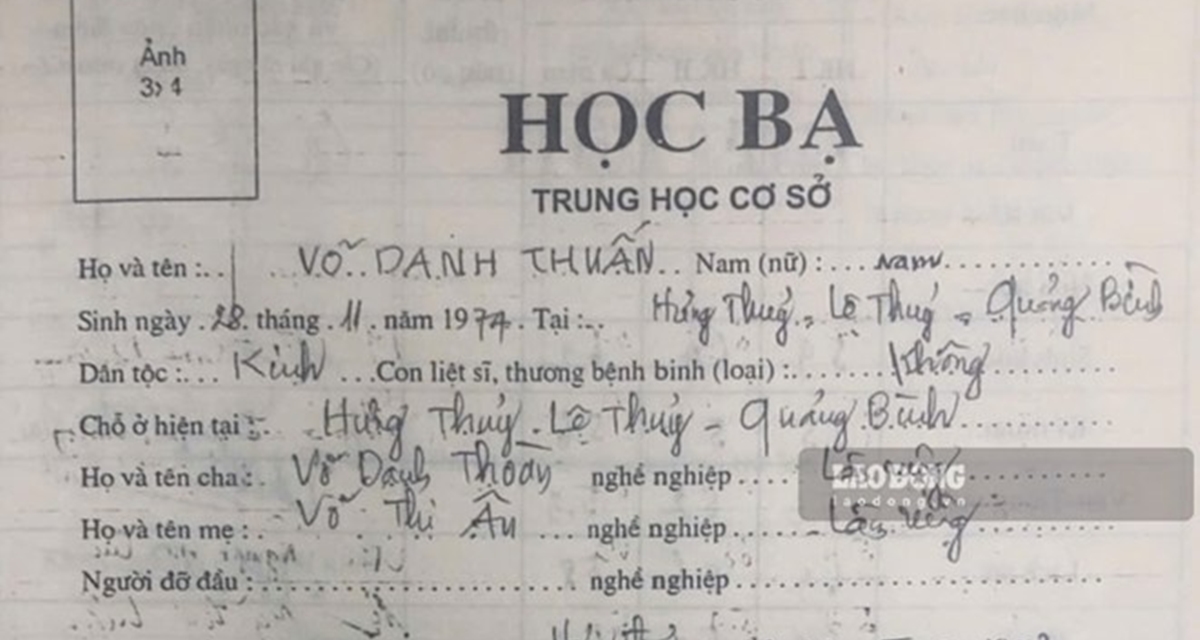 Ảnh
3x4
HỌC BẠ
TRUNG HỌC CƠ SỞ
Họ và tên :.. VÕ DANH THUẤN.. Nam (nữ) :... Nam
Sinh ngày .28. tháng .11. năm 1974. Tại :.. Hưng Thuỷ - Lệ Thuỷ - Quảng Bình
Dân tộc :... Kinh ...Con liệt sĩ, thương bệnh binh (loại) :... Không
Chỗ ở hiện tại :. Hưng Thuỷ - Lệ Thuỷ - Quảng Bình
Họ và tên cha :. Võ Danh Thoàn nghề nghiệp .... Làm ruộng
LAO ĐỘNG
laodong.vn
Họ và tên mẹ :. Võ Thị Ân ... nghề nghiệp .... Làm ruộng
Người đỡ đầu :... nghề nghiệp ...